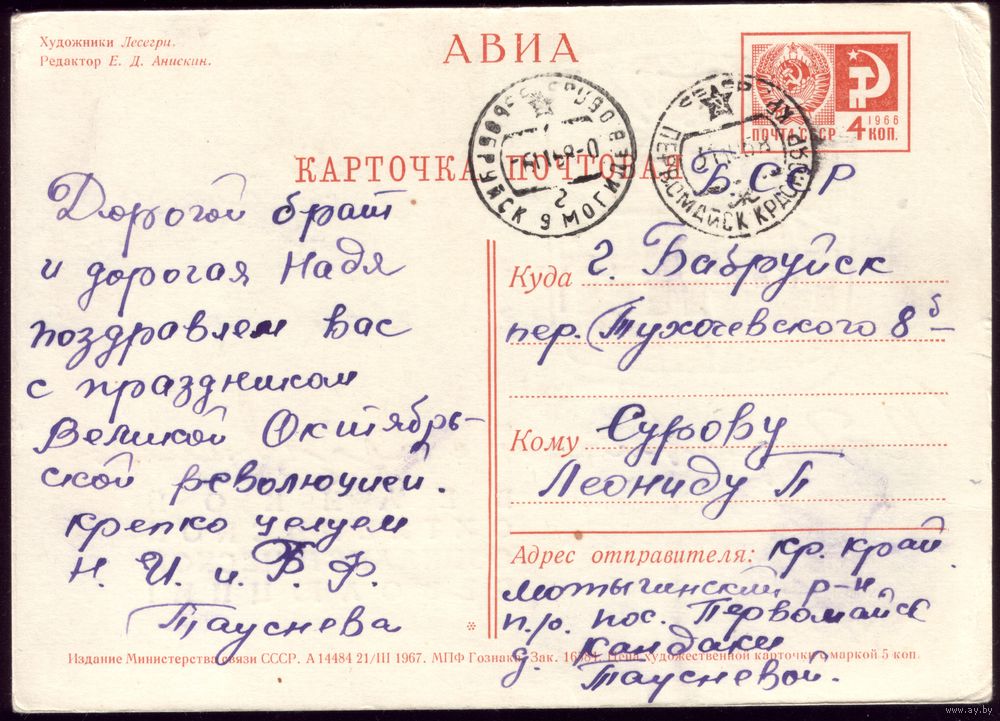 Художники Лесегри.
Редактор Е. Д. Анискин.
АВИА
КАРТОЧКА ПОЧТОВАЯ
1966
ПОЧТА СССР 4 КОП.
БОБРУЙСК 9 МОГИЛЕВ
ПЕРВОМАЙСК КРАСНОЯР. КР.
Дорогой брат
и дорогая Надя
поздравляем вас
с праздником
Великой Октябрь-
ской революцией.
крепко целуем
Н. И. и В. Ф.
Тауснева
БССР
Куда г. Бабруйск
пер. Тухачевского 8 б
Кому Сурову
Леониду П
Адрес отправителя: кр. край
мотыгинский р-н
п/о. пос. Первомайск
д. Кандаки
Таусневой.
Издание Министерства связи СССР. А 14484 21/III 1967. МПФ Гознака. Зак. Цена художественной карточки с маркой 5 коп.
www.ay.by